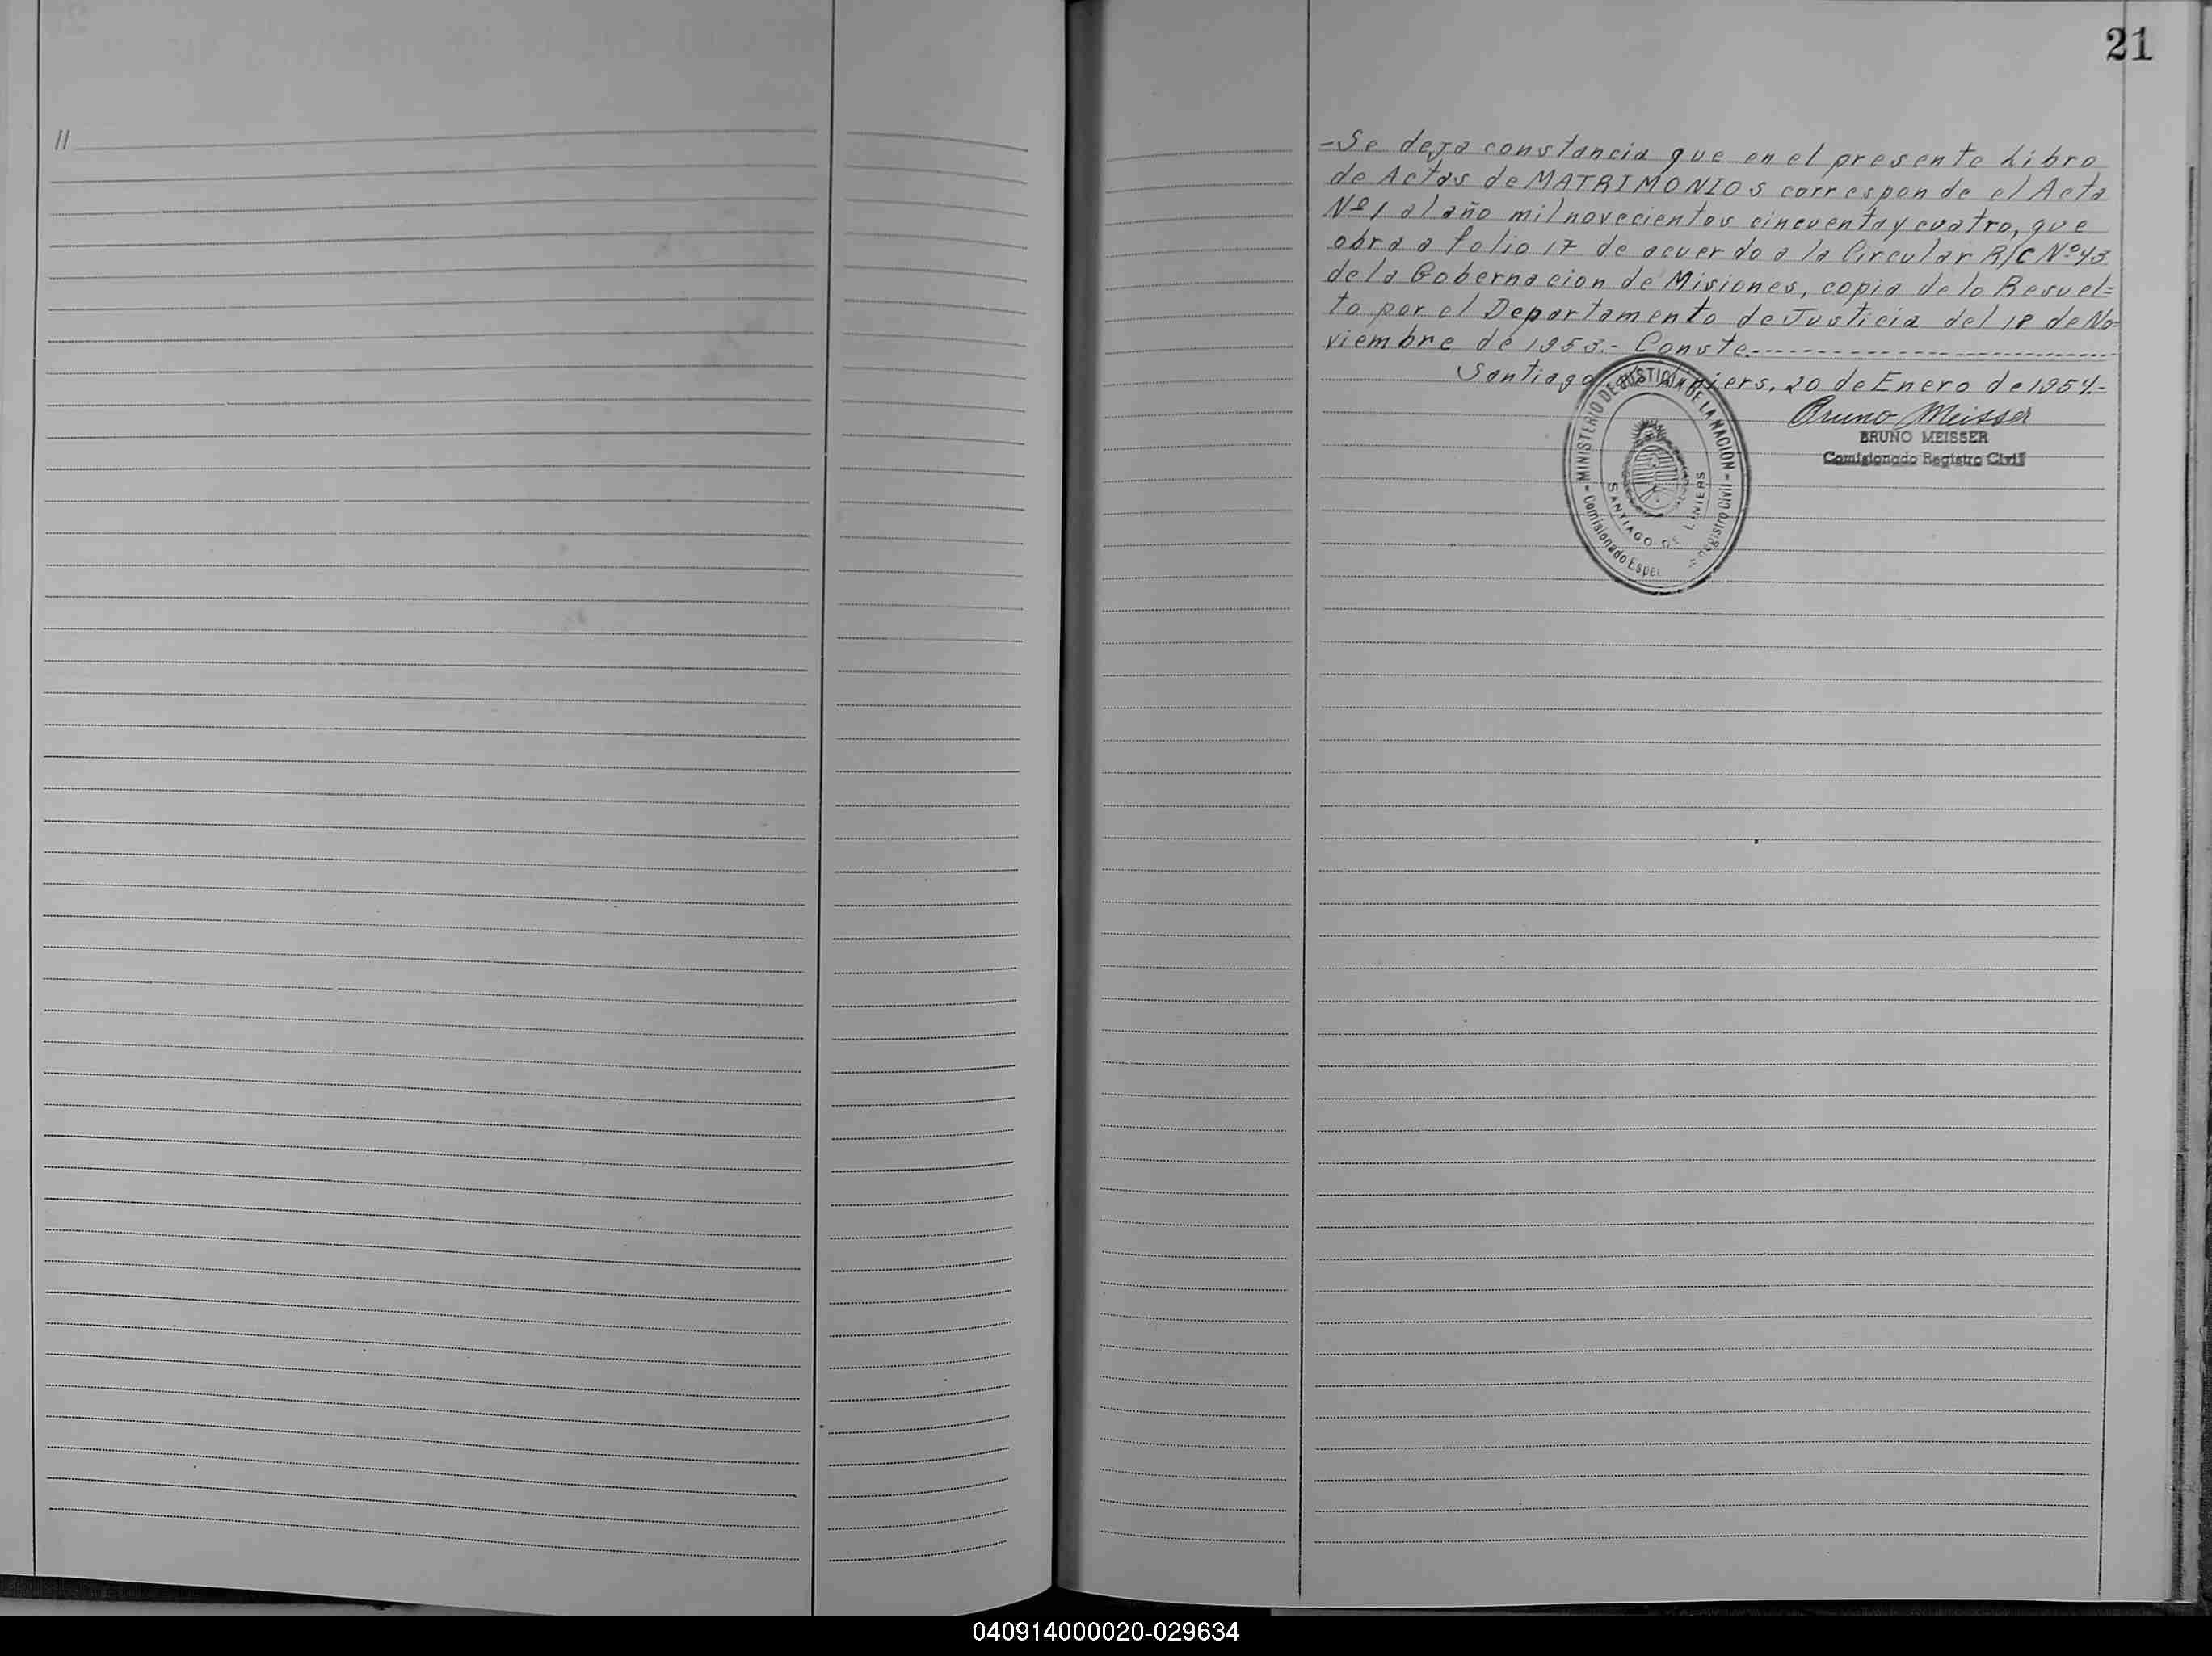 21
//
-Se deja constancia que en el presente Libro
de Actas de MATRIMONIOS corresponde el Acta
Nº 1 al año mil novecientos cincuenta y cuatro, que
obra a folio 17 de acuerdo a la Circular R/C Nº 43
de la Gobernacion de Misiones, copia de lo Resuel=
to por el Departamento de Justicia del 18 de No=
viembre de 1953.- Conste.
Santiago de Liniers, 20 de Enero de 1954.-
Bruno Meisser
BRUNO MEISSER
Comisionado Registro Civil
MINISTERIO DE JUSTICIA DE LA NACION
SANTIAGO DE LINIERS
Comisionado Registro Civil
040914000020-029634